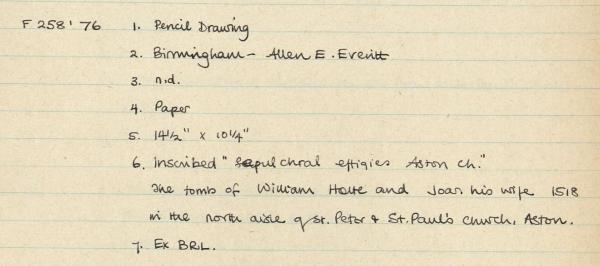 F 258'76 1. Pencil Drawing
2. Birmingham - Allen E. Everitt
3. n.d.
4. Paper
5. 14½" x 10¼"
6. Inscribed "Sepulchral effigies Aston Ch."
The tomb of William Holte and Joan his wife 1518
in the north aisle of St. Peter & St. Paul's church, Aston.
7. Ex BRL.